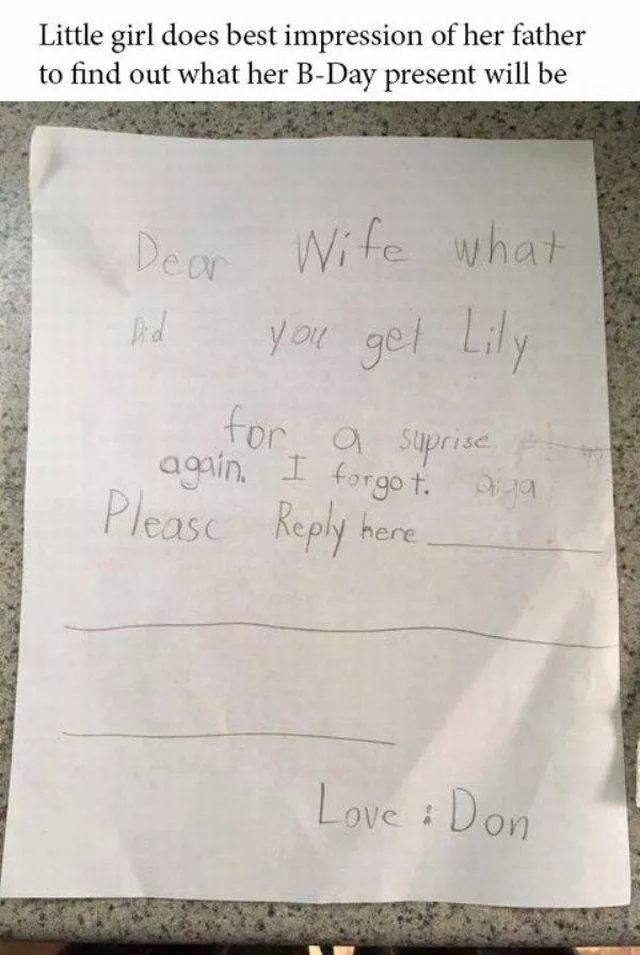 Little girl does best impression of her father
to find out what her B-Day present will be
Dear Wife what
Did you get Lily
for a suprise
again. I forgot. aiga
Please Reply here
Love : Don